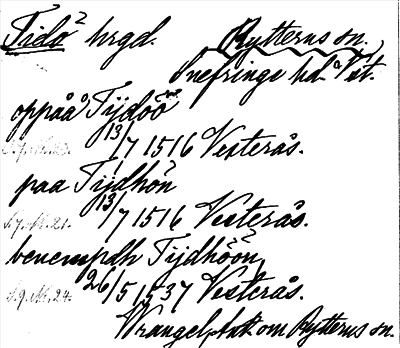 Tidö² hrgd. Rytterns sn.
Snefringe hd. Vst.
oppaå Tijdöö
13/7 1516 Vesterås.
paa Tijdhön
S.7. N. 21. 13/7 1516 Vesterås.
benempdh Tijdhöön,
S.9. N. 24. 26/5 1537 Vesterås.
Wrangel, om Rytterns sn.